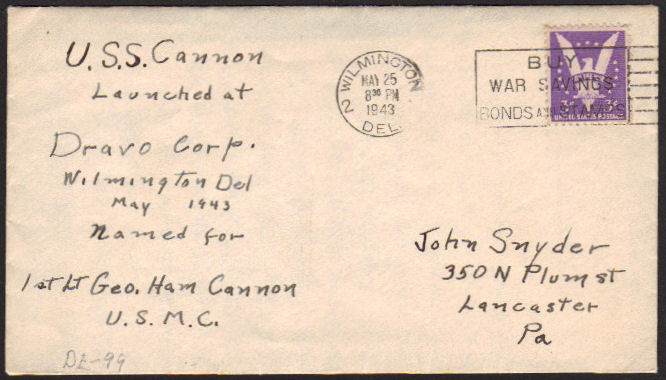 U.S.S. Cannon
Launched at
Dravo Corp.
Wilmington Del
May 1943
Named for
1st Lt Geo. Ham Cannon
U.S.M.C.
DE-99
WILMINGTON
MAY 25
8 30 PM
1943
2
DEL.
BUY
WAR SAVINGS
BONDS AND STAMPS
3¢ 3¢
UNITED STATES POSTAGE
John Snyder
350 N Plum st
Lancaster
Pa